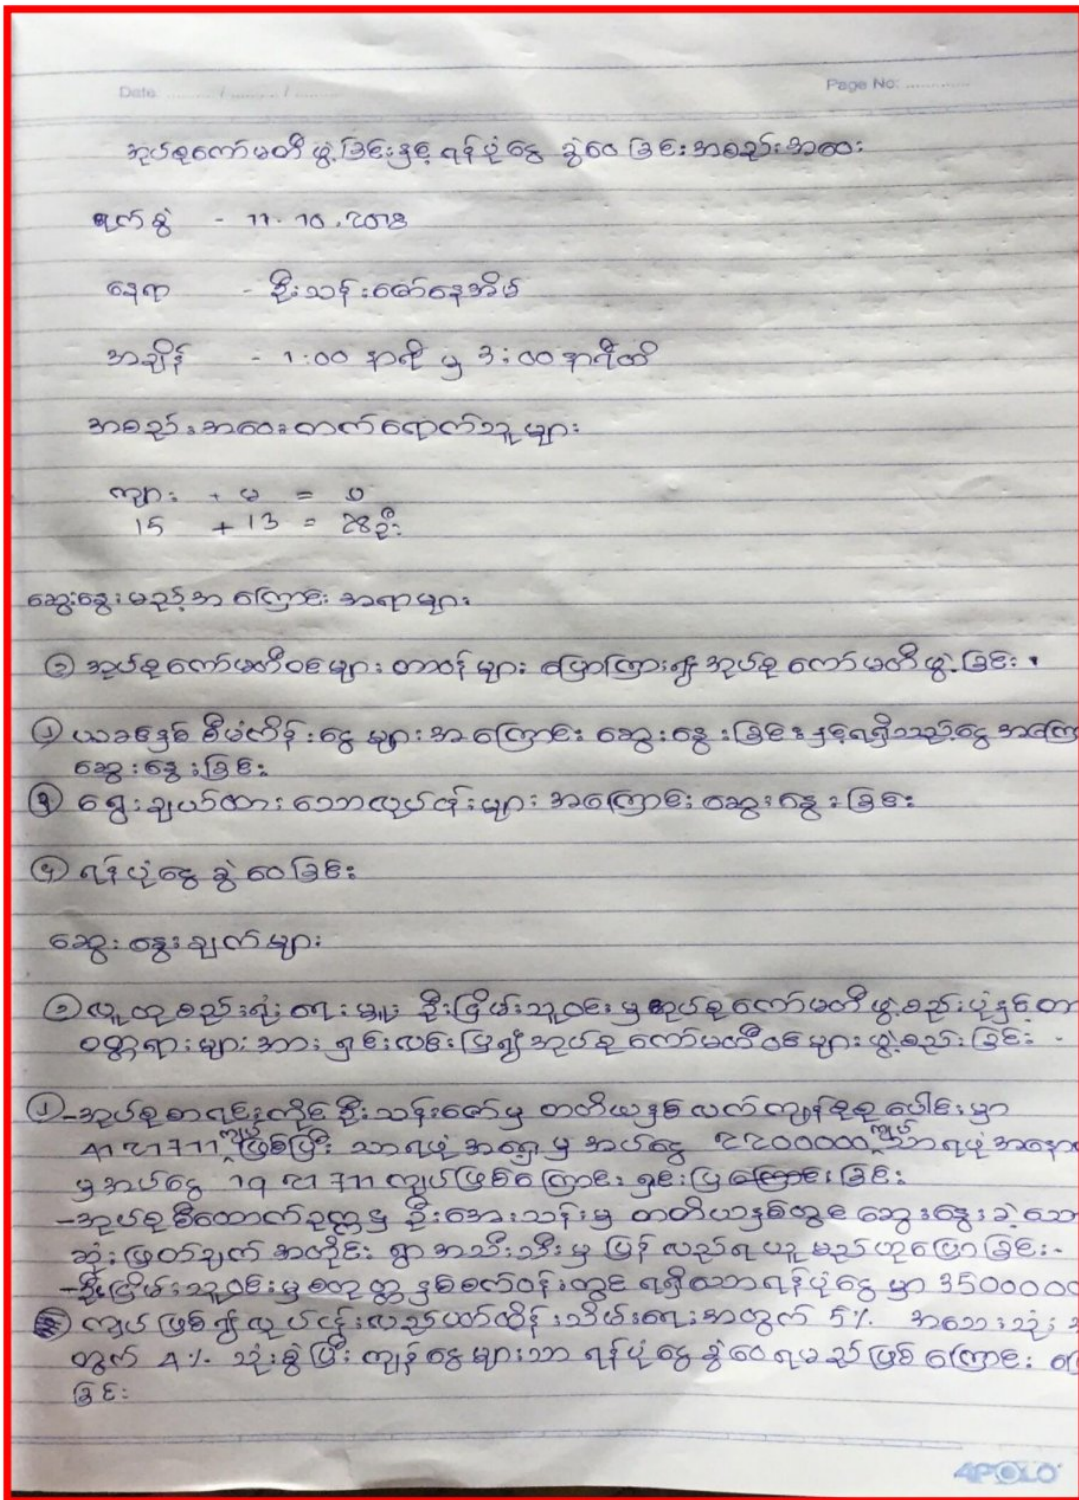 Date ......... / ......... / .........
Page No: .............
အုပ်စုကော်မတီဖွဲ့ခြင်းနှင့် ရန်ပုံငွေ ခွဲဝေခြင်းအစည်းအဝေး
ရက်စွဲ - 11.10.2018
နေရာ - ဦးသန်းဇော်နေအိမ်
အချိန် - 1:00 နာရီ မှ 3:00 နာရီထိ
အစည်းအဝေးတက်ရောက်သူများ
ကျား + မ = ပ
15 + 13 = 28ဦး
ဆွေးနွေးမည့်အကြောင်းအရာများ
၁ အုပ်စုကော်မတီဝင်များ တာဝန်များ ပြောကြား၍ အုပ်စုကော်မတီဖွဲ့ခြင်း ၊
၂ ယခင်နှစ် စီမံကိန်းငွေများအကြောင်း ဆွေးနွေးခြင်းနှင့်ရရှိသည့်ငွေ အကြော
ဆွေးနွေးခြင်း
၃ ရွေးချယ်ထားသောလုပ်ငန်းများ အကြောင်းဆွေးနွေးခြင်း
၄ ရန်ပုံငွေ ခွဲဝေခြင်း
ဆွေးနွေးချက်များ
၁ လူထုစည်းရုံးရေးမှူး ဦးငြိမ်းသူဝင်းမှအုပ်စုကော်မတီဖွဲ့စည်းပုံနှင့်တာ
ဝတ္တရားများအား ရှင်းလင်းပြ၍အုပ်စုကော်မတီဝင်များဖွဲ့စည်းခြင်း -
၂ -အုပ်စုစာရင်းကိုင်ဦးသန်းဇော်မှ တတိယနှစ်လက်ကျန်စုစုပေါင်းမှာ
4121711ကျပ်ဖြစ်ပြီး သာရဖုံအရှေ့မှအပ်ငွေ 2200000ကျပ်သာရဖုံအနော
မှအပ်ငွေ 1921711ကျပ်ဖြစ်ကြောင်း ရှင်းပြခြင်း
-အုပ်စုစီထောက်ဥက္ကဋ္ဌ ဦးအေးသန်းမှ တတိယနှစ်တွင် ဆွေးနွေးခဲ့သော
ဆုံးဖြတ်ချက် အတိုင်း ရွာအသီးသီးမှ ပြန်လည်ရယူမည်ဟုပြောခြင်း -
-ဦးငြိမ်းသူဝင်းမှစတုတ္ထနှစ်စက်ဝန်းတွင် ရရှိသောရန်ပုံငွေမှာ 35000000
ကျပ်ဖြစ်၍လုပ်ငန်းလည်ပတ်ထိန်းသိမ်းရေးအတွက် 5% အသေးသုံး
တွက် 4% သုံးစွဲပြီး ကျန်ငွေများသာ ရန်ပုံငွေခွဲဝေရမည်ဖြစ်ကြောင်း
ခြင်း
APOLO